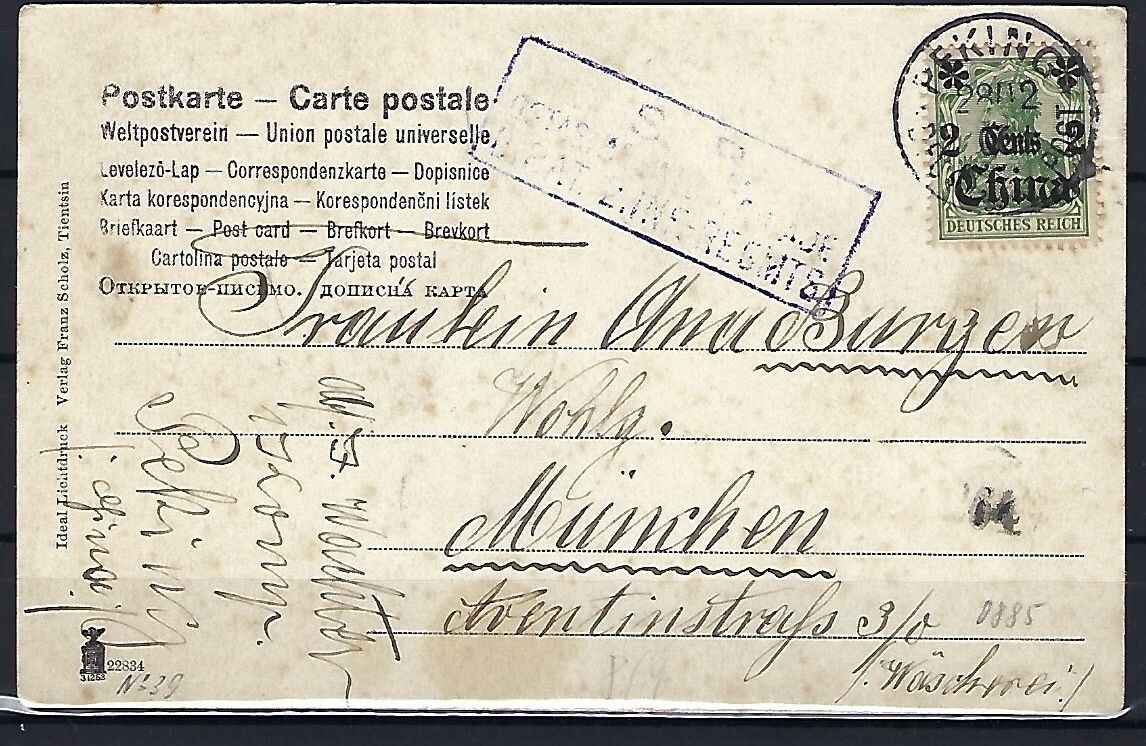 Postkarte — Carte postale
Weltpostverein — Union postale universelle
Levelező-Lap — Correspondenzkarte — Dopisnice
Karta korespondencyjna — Korespondenčni listek
Briefkaart — Post card — Brefkort — Brevkort
Cartolina postale — Tarjeta postal
Открытое-письмо. дописна карта
S. B.
OSTAS.
2. INF-REGMTS.
PEKING
POST
2 Cents
China
DEUTSCHES REICH
Fräulein Ana Burger
Wohlg.
München
Aventinstraße 3/0
(Wäscherei)
64
0885
Peking
(China)
Ideal Lichtdruck Verlag Franz Scholz, Tientsin
22834
31253
No 39